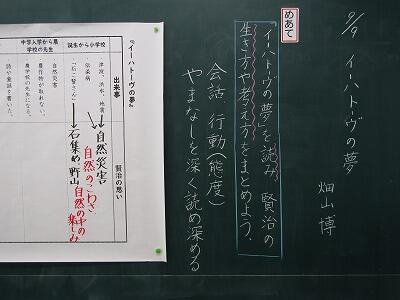 9/9 イーハトーヴの夢
畑山 博
めあて
『イーハトーヴの夢』を読み、賢治の
生き方や考え方をまとめよう。
会話 行動(態度)
やまなしを深く読め深める
『イーハトーヴの夢』
出来事
賢治の思い
誕生から小学校
津波、洪水、地震
伝染病
「石こ賢さん」
自然災害
自然のこわさ
石集め、野山
自然の中の
楽しみ
中学入学から農
学校の先生
自然災害
農作物が取れない。
農学校の先生になる。
詩や童話を書いた。